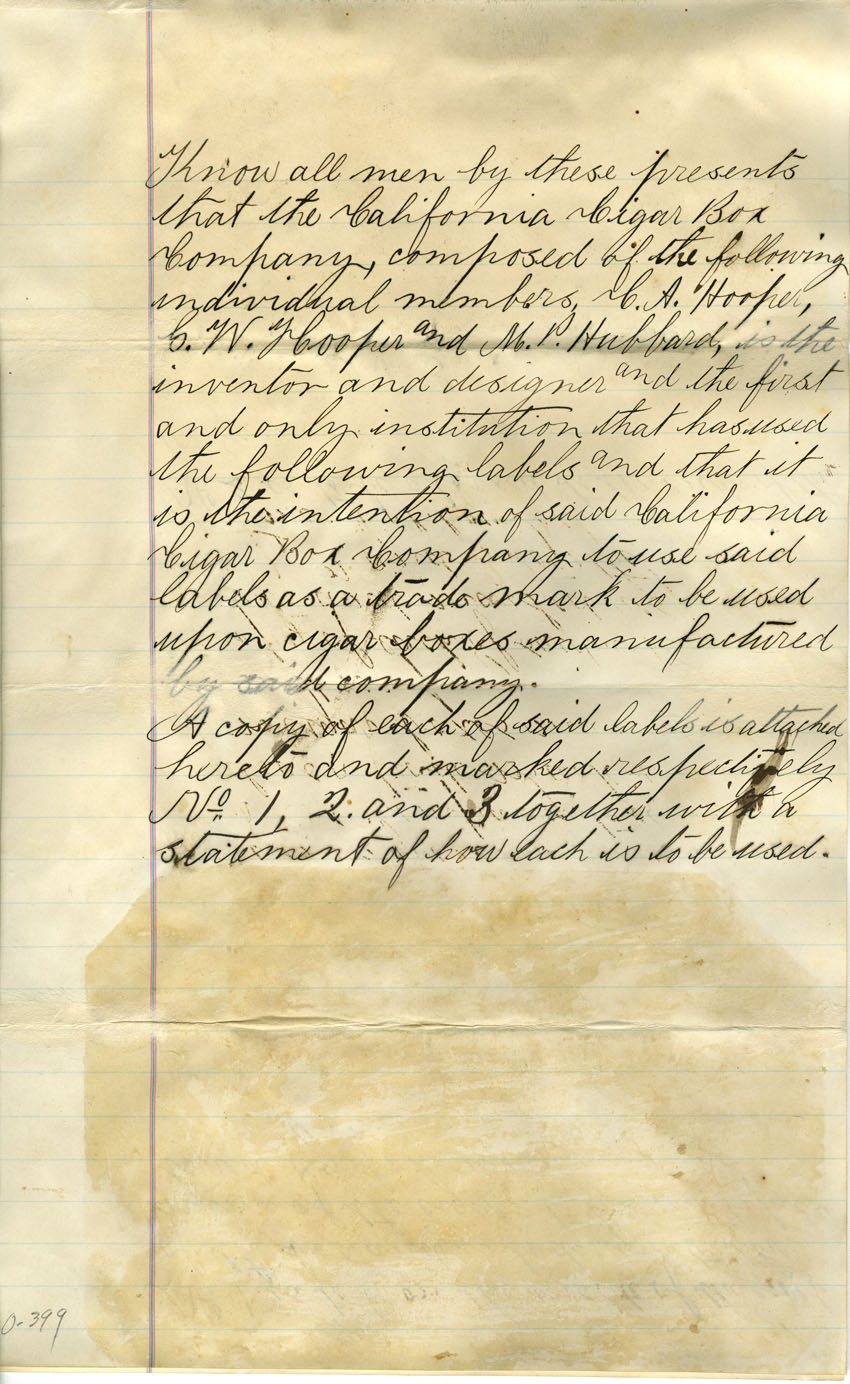 Know all men by these presents
that the California Cigar Box
Company, composed of the following
individual members, C. A. Hooper,
G. W. Hooper and M. P. Hubbard, is the
inventor and designer and the first
and only institution that has used
the following labels and that it
is the intention of said California
Cigar Box Company to use said
labels as a trade mark to be used
upon cigar boxes manufactured
by said company.
A copy of each of said labels is attached
hereto and marked respectively
No 1, 2. and 3 together with a
statement of how each is to be used.
0-399